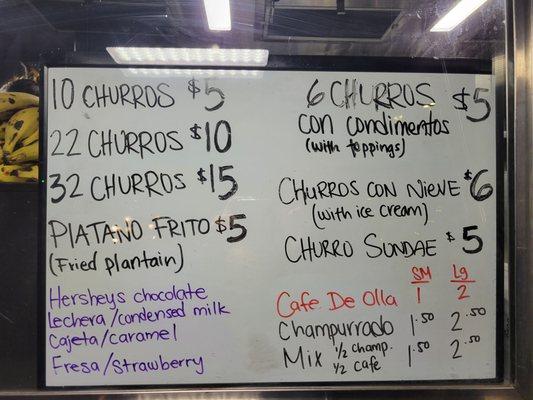 10 CHURROS $5
22 CHURROS $10
32 CHURROS $15
PLATANO FRITO $5
(Fried plantain)
Hersheys chocolate
Lechera/condensed milk
Cajeta/caramel
Fresa/Strawberry
6 CHURROS $5
con condimentos
(with toppings)
CHURROS CON NIEVE $6
(with ice cream)
CHURRO SUNDAE $5
SM Lg
Cafe De Olla 1 2
Champurrado 1.50 2.50
Mix 1/2 champ. 1.50 2.50
1/2 cafe